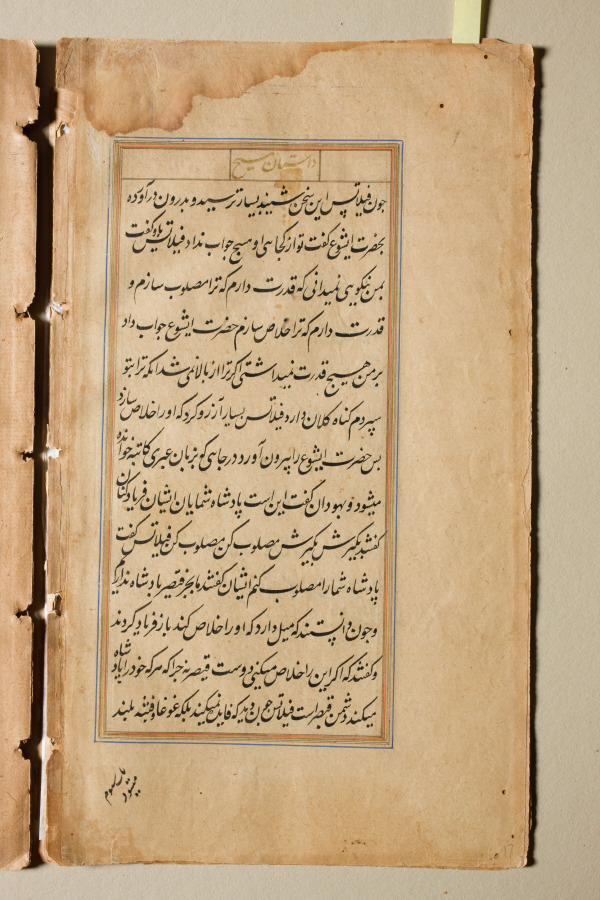 داستان مسیح
چون فیلاتس این سخن شنید بسیار ترسید و بدرون در آورده
بحضرت ایشوع گفت تو از کجاهی او هیچ جواب نداد فیلاتس باو گفت
بمن نیکویی نمیدانی که قدرت دارم که ترا مصلوب سازم و
قدرت دارم که ترا خلاص سازم حضرت ایشوع جواب داد
بر من هیچ قدرت نمیداشتی اگر ترا از بالا نمی شد آنکه ترا بتو
سپردم گناه کلان دارد فیلاتس بسیار آرزو کرد که او را خلاص سازد
پس حضرت ایشوع را بیرون آورد در جاهی که بزبان عبری کاتبه خوانده
میشود و یهودان گفت این است پادشاه شمایان ایشان فریاد کنان
گفتند بگیرش بگیرش مصلوب کن مصلوب کن فیلاتس گفت
پادشاه شما را مصلوب کنم ایشان گفتند ما بجز قیصر پادشاه نداریم
و چون دانستند که میل دارد که او را خلاص کند باز فریاد کردند
و گفتند که اگر این را خلاص میکنی دوست قیصر نه چرا که هر که خود را پادشاه
میکند دشمن قیصر است فیلاتس چون دید که فایده نمیکند بلکه غوغا و فتنه بلند
میشود